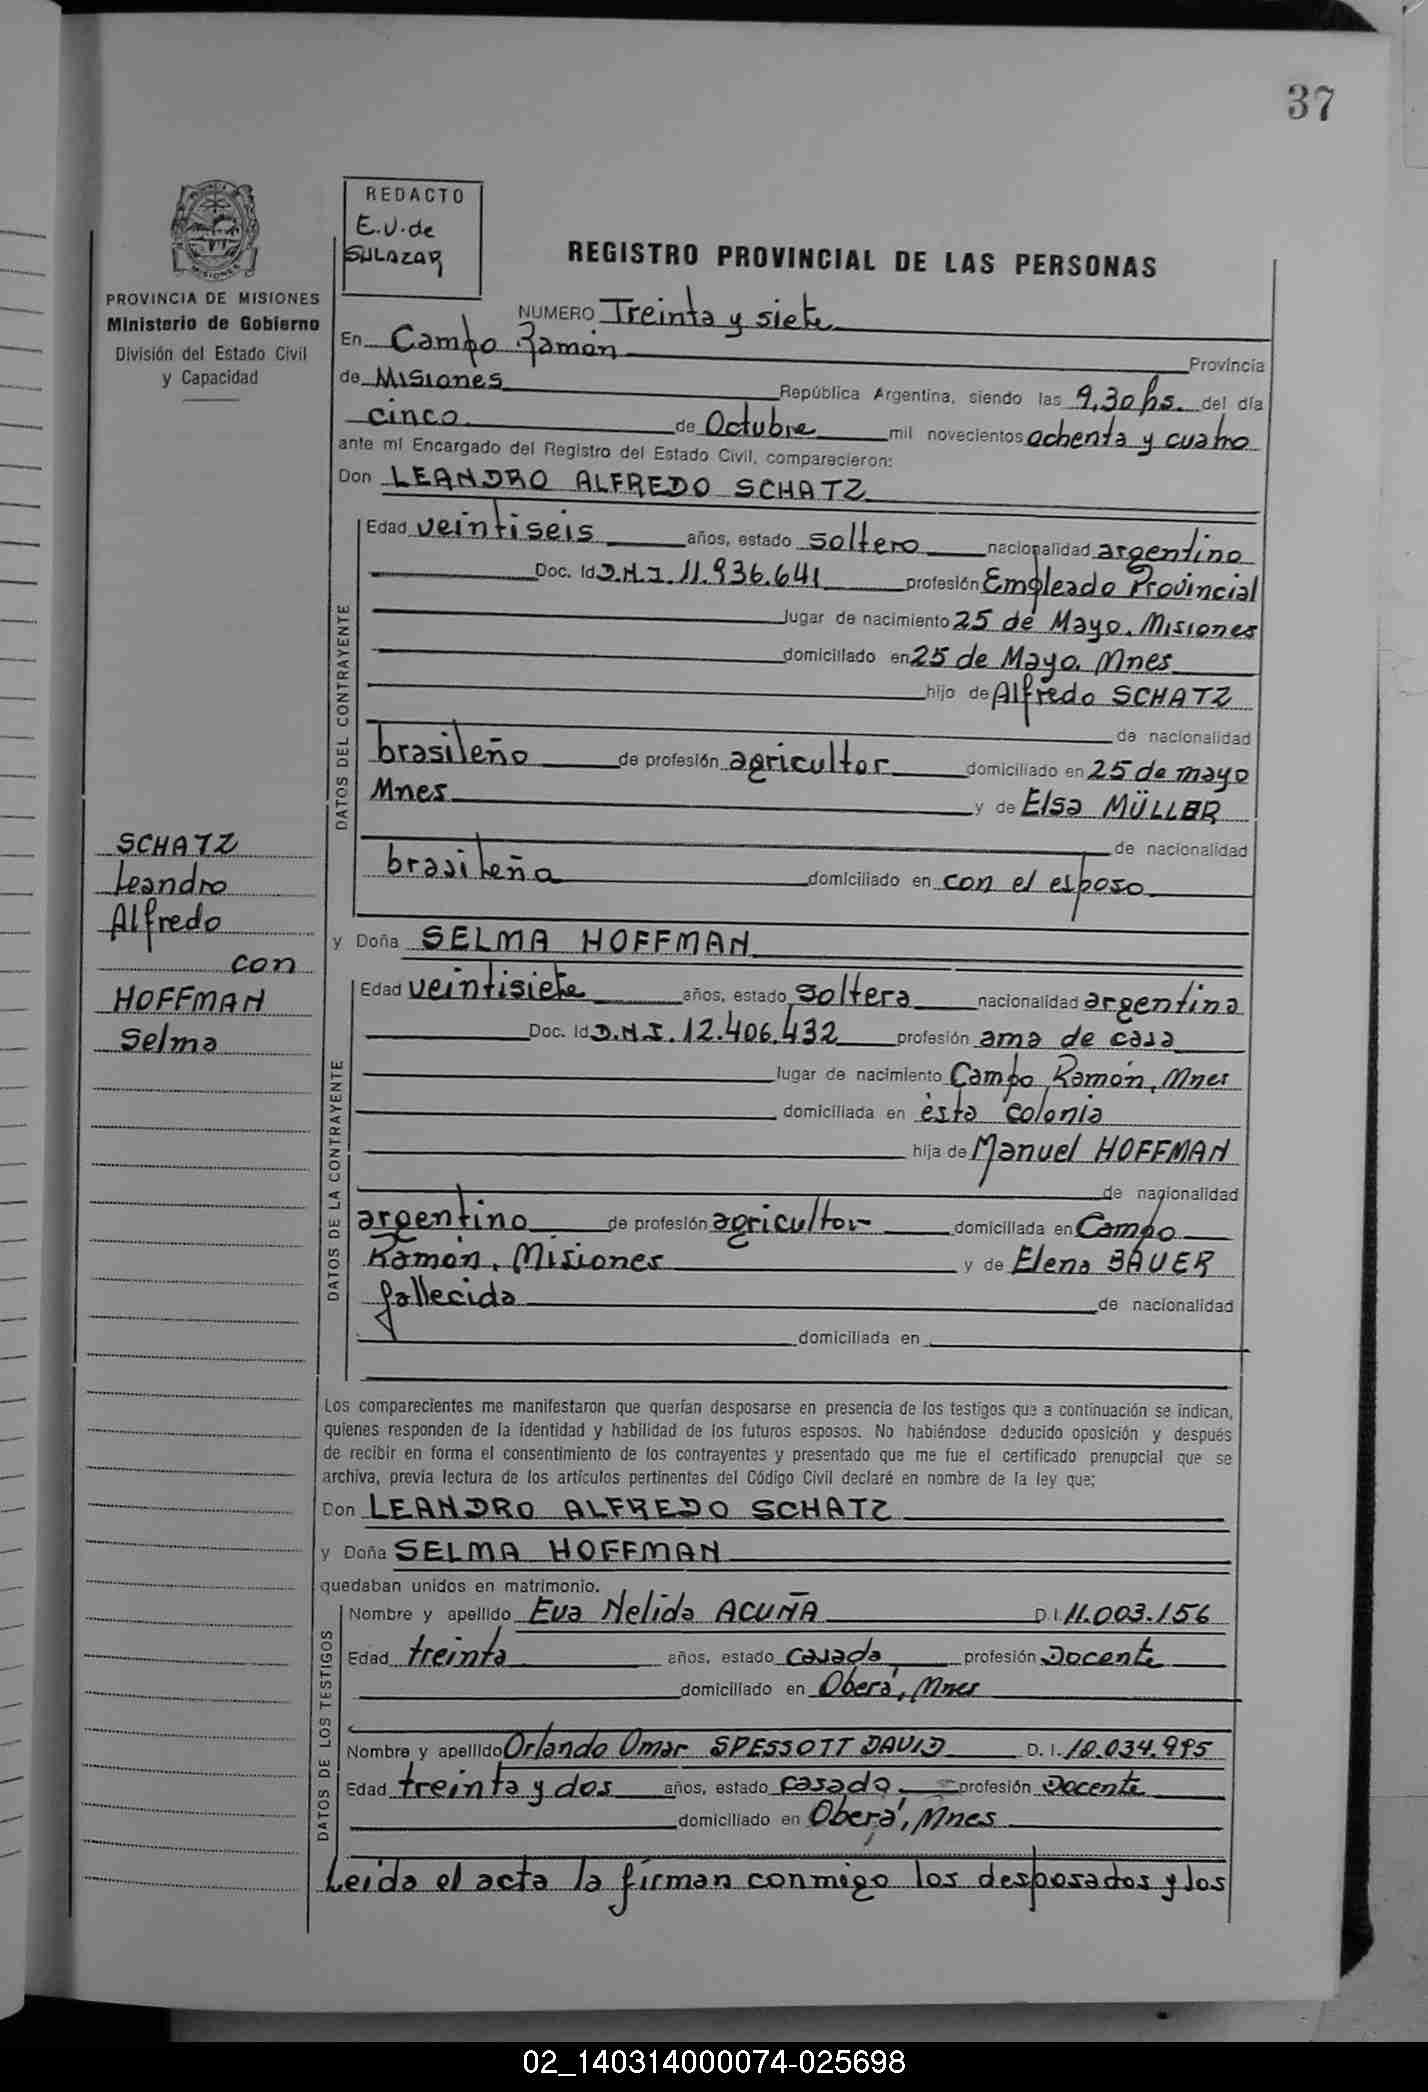 37
REDACTO
E.V. de
SALAZAR
PROVINCIA DE MISIONES
Ministerio de Gobierno
División del Estado Civil
y Capacidad
REGISTRO PROVINCIAL DE LAS PERSONAS
NUMERO Treinta y siete
En Campo Ramón Provincia
de Misiones República Argentina, siendo las 9,30 hs. del día
cinco de Octubre mil novecientos ochenta y cuatro
ante mí Encargado del Registro del Estado Civil, comparecieron:
Don LEANDRO ALFREDO SCHATZ
DATOS DEL CONTRAYENTE
Edad veintiseis años, estado soltero nacionalidad argentino
Doc. Id D.N.I. 11.936.641 profesión Empleado Provincial
lugar de nacimiento 25 de Mayo, Misiones
domiciliado en 25 de Mayo, Mnes
hijo de Alfredo SCHATZ
de nacionalidad
brasileño de profesión agricultor domiciliado en 25 de mayo
Mnes y de Elsa MÜLLER
de nacionalidad
brasileña domiciliado en con el esposo
SCHATZ
Leandro
Alfredo
con
HOFFMAN
Selma
y Doña SELMA HOFFMAN
DATOS DE LA CONTRAYENTE
Edad veintisiete años, estado soltera nacionalidad argentina
Doc. Id D.N.I. 12.406.432 profesión ama de casa
lugar de nacimiento Campo Ramón, Mnes
domiciliada en ésta colonia
hija de Manuel HOFFMAN
de nacionalidad
argentino de profesión agricultor domiciliada en Campo
Ramón, Misiones y de Elena BAUER
fallecida de nacionalidad
domiciliada en
Los comparecientes me manifestaron que querían desposarse en presencia de los testigos que a continuación se indican,
quienes responden de la identidad y habilidad de los futuros esposos. No habiéndose deducido oposición y después
de recibir en forma el consentimiento de los contrayentes y presentado que me fue el certificado prenupcial que se
archiva, previa lectura de los artículos pertinentes del Código Civil declaré en nombre de la ley que;
Don LEANDRO ALFREDO SCHATZ
y Doña SELMA HOFFMAN
quedaban unidos en matrimonio.
DATOS DE LOS TESTIGOS
Nombre y apellido Eva Nelida ACUÑA D.I. 11.003.156
Edad treinta años, estado casada profesión Docente
domiciliado en Oberá, Mnes
Nombre y apellido Orlando Omar SPESSOTT DAVID D.I. 10.034.995
Edad treinta y dos años, estado casado profesión Docente
domiciliado en Oberá, Mnes
Leida el acta la firman conmigo los desposados y los
02_140314000074-025698